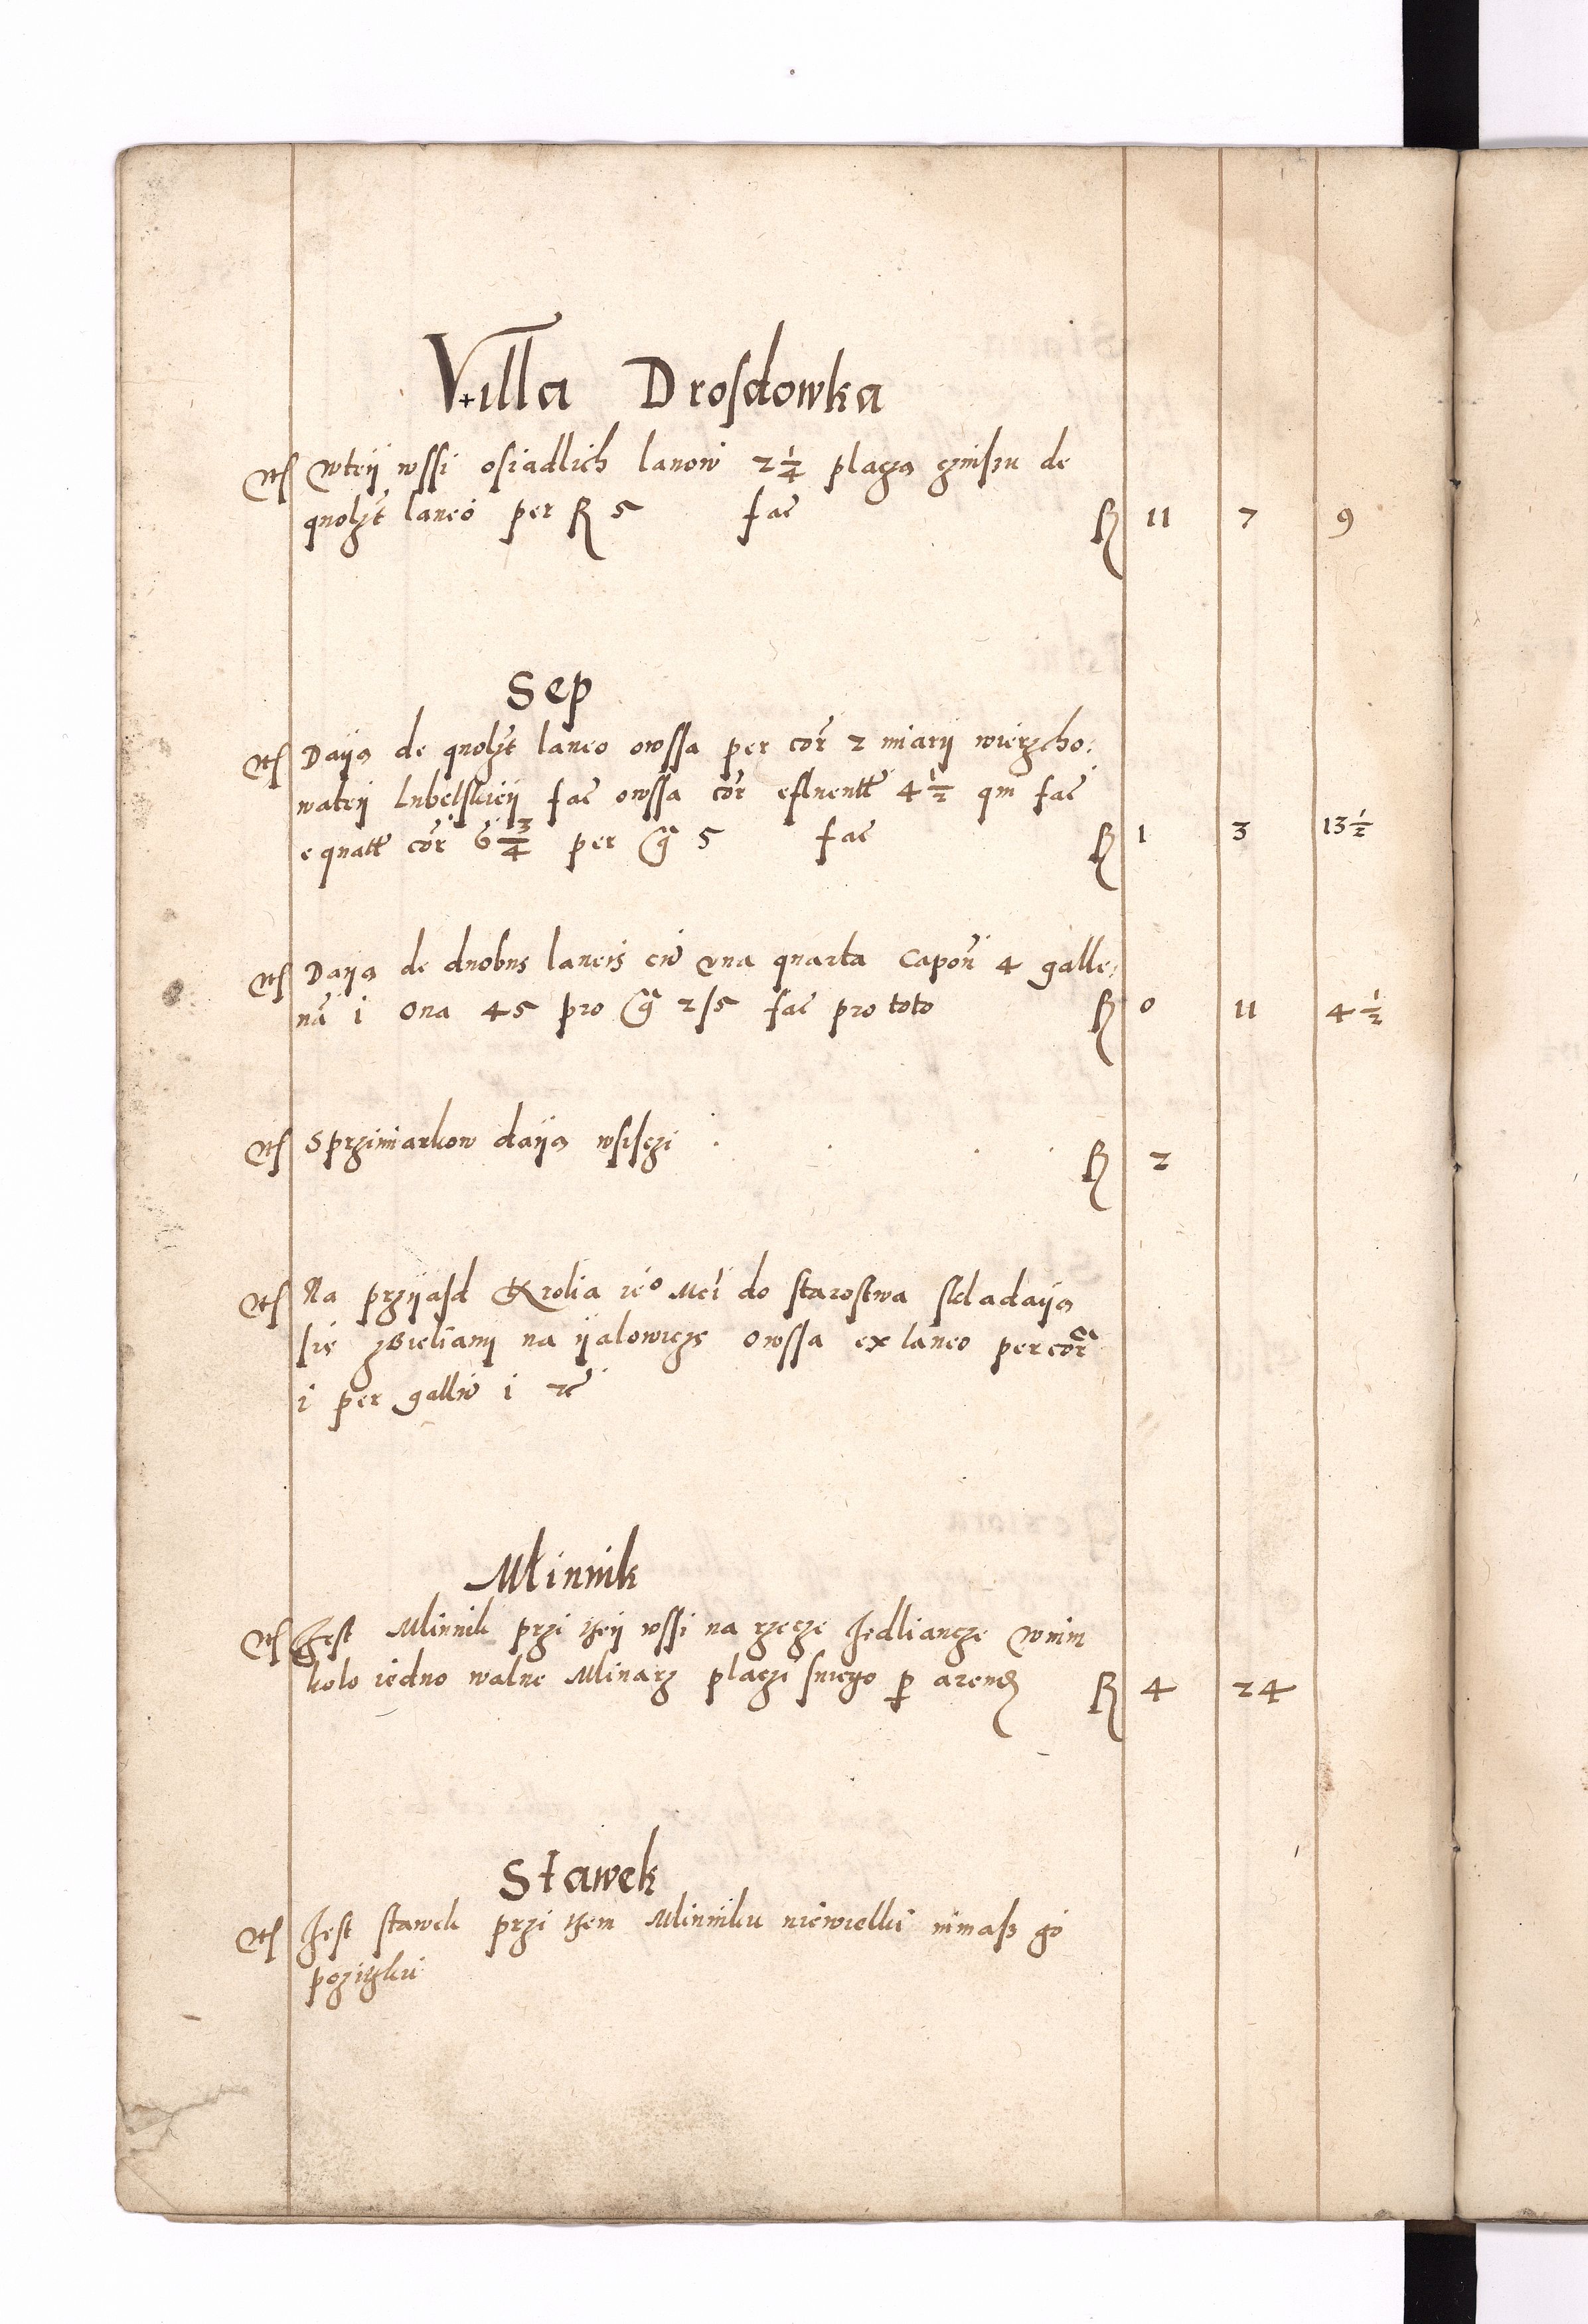 Villa Drosdowka
Wteÿ wssi osiadlich lanow 2 1/4 placza czinszu de
quolzt laneo per fl 5 fac fl 11 7 9
Sep
Dayą de quolzt laneo owssa per cor 2 miarÿ wierzcho:
wateÿ Lubelskieÿ fac owssa cor efluentt 4 1/2 qm fac
equatt cor 6 3/4 per g 5 fac fl 1 3 13 1/2
Dayą de duobus laneis cu una quarta Capon 4 galle:
na 1 Oua 45 pro g 2/5 fac pro toto fl 0 11 4 1/2
Sprzimiarkow dayą wsisczi fl 2
Na przyiasd Krolia ie° Mci do starostwa skladayą
sie zBieliany na ÿalowicze Owssa ex laneo per cor
1 per gallin 1 rc
Młinnik
Jest Mlinnik przi tzeÿ wssi na rzecze Jedliancze wnim
kolo iedno walne Mlinarz placzi snieg° p arend fl 4 24
Stawek
Jest stawek przi tzem Mlinniku niewielki nimasz go
pozitzku